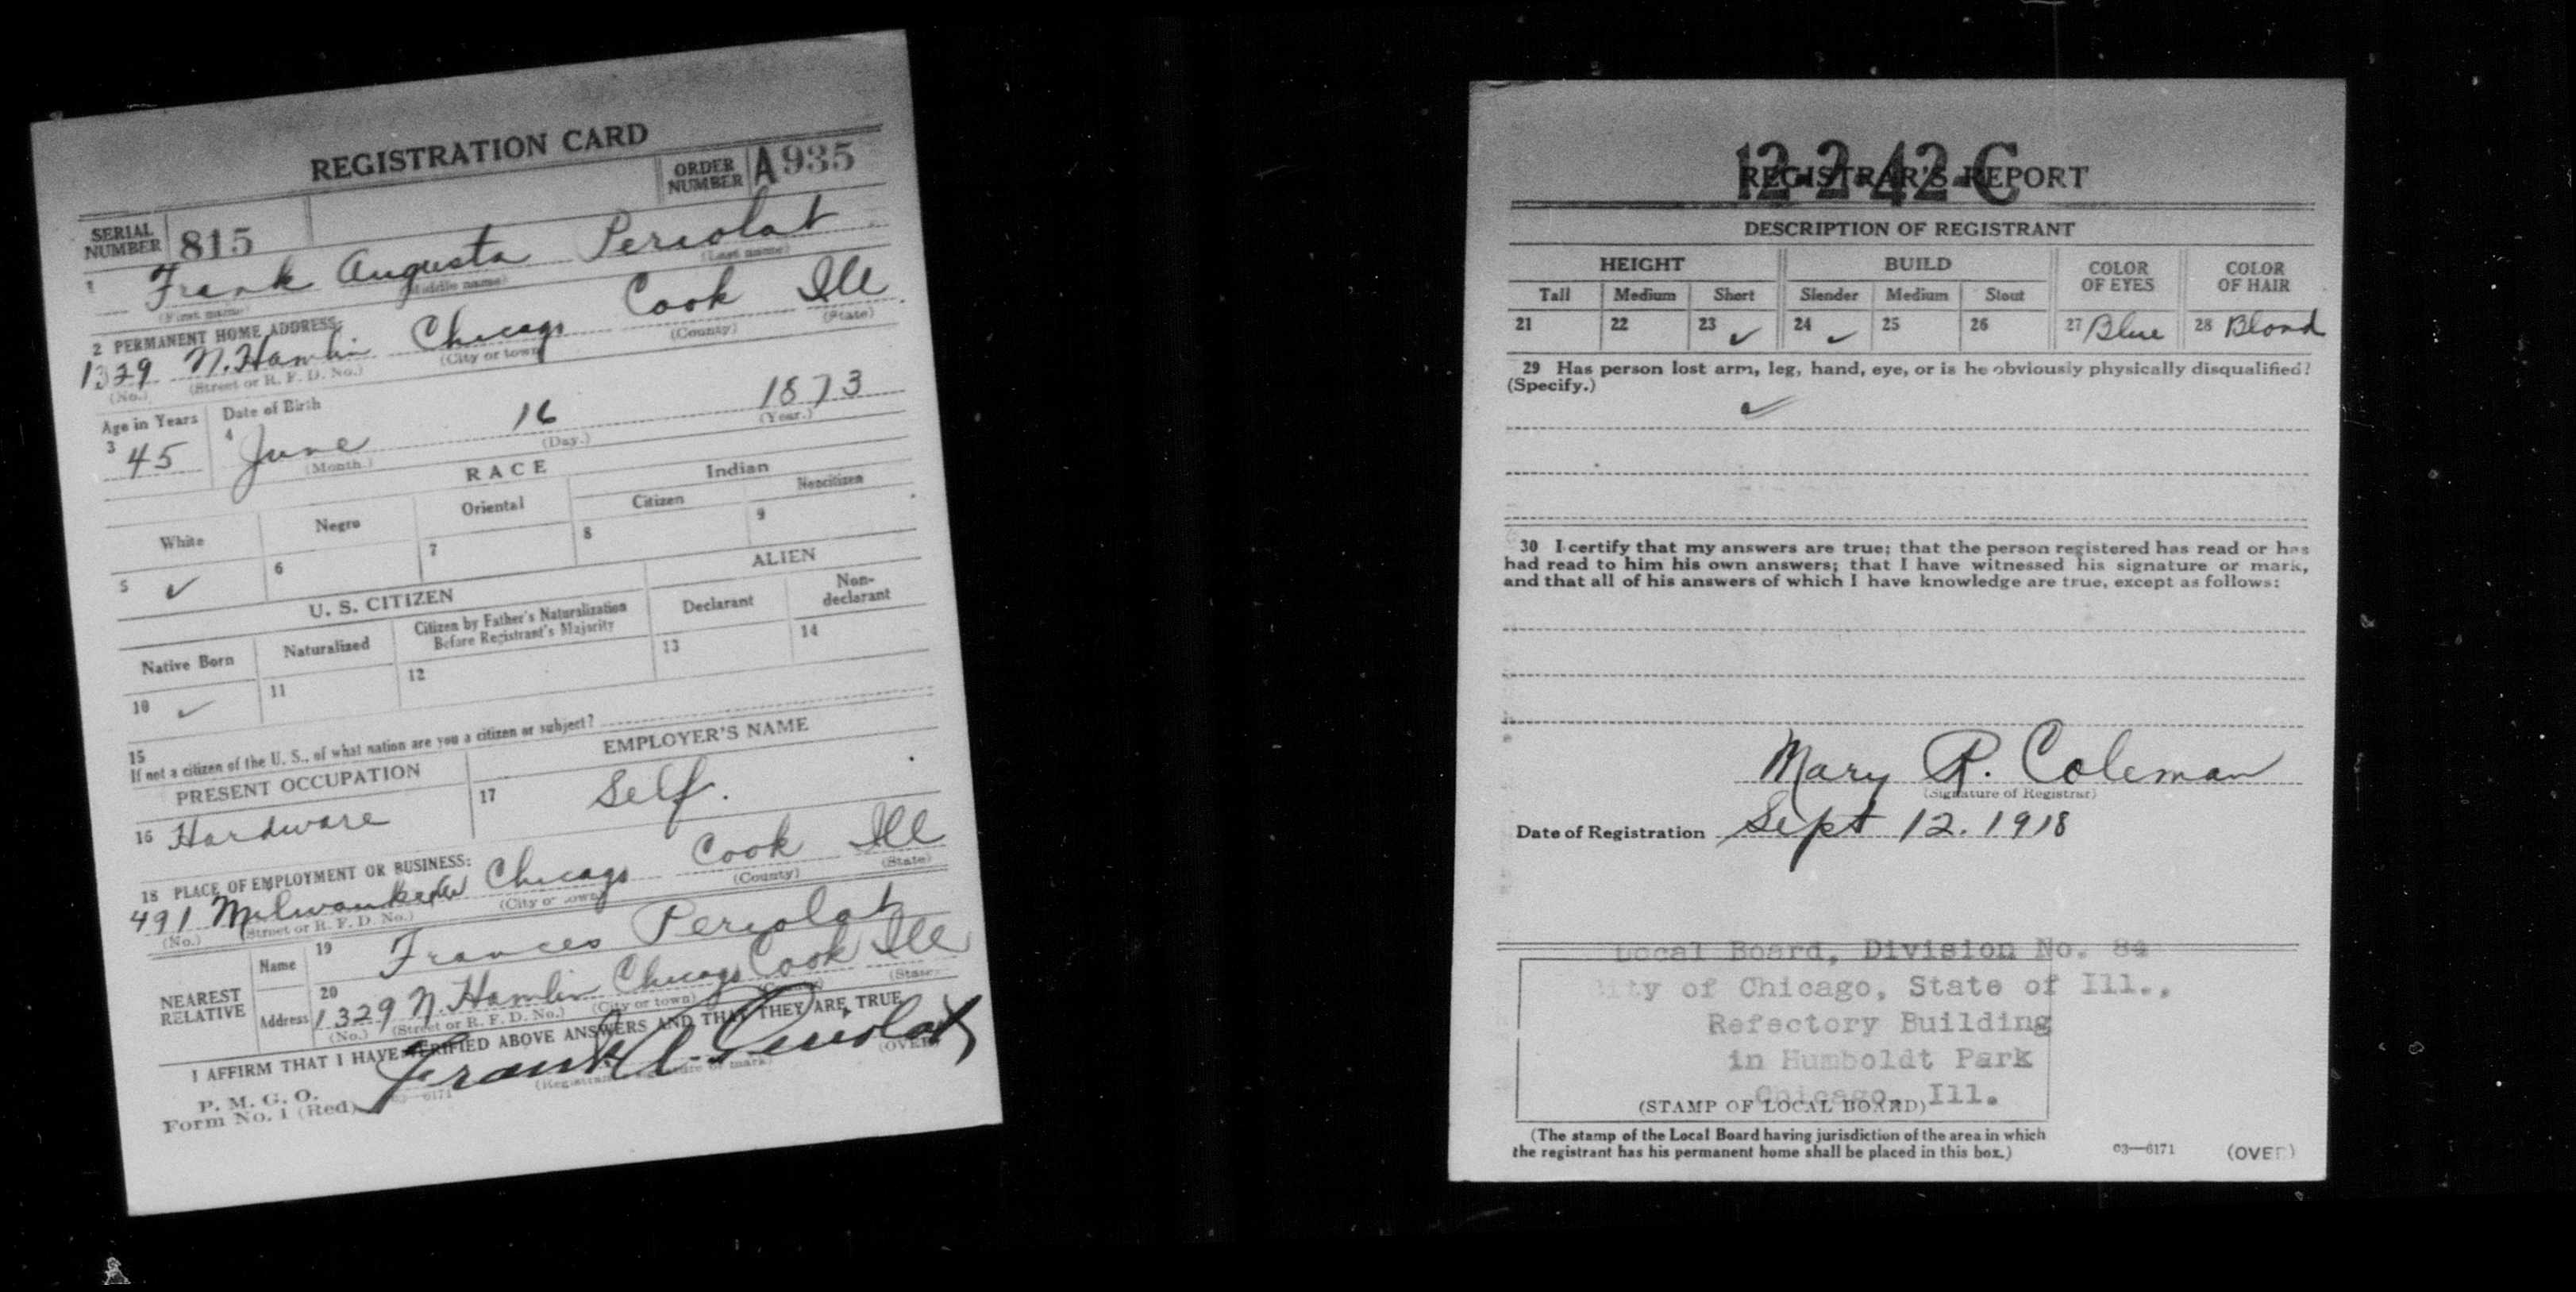 REGISTRATION CARD
SERIAL NUMBER 815
ORDER NUMBER A 935
1 Frank Augusta Periolat
(First name) (Middle name) (Last name)
2 PERMANENT HOME ADDRESS:
1329 N. Hamlin Chicago Cook Ill
(No.) (Street or R. F. D. No.) (City or town) (County) (State)
Age in Years Date of Birth
3 45 4 June 16 1873
(Month.) (Day.) (Year.)
RACE
White Negro Oriental Indian
Citizen Noncitizen
5 ✓ 6 7 8 9
U. S. CITIZEN ALIEN
Native Born Naturalized Citizen by Father's Naturalization Before Registrant's Majority Declarant Non-declarant
10 ✓ 11 12 13 14
15
If not a citizen of the U. S., of what nation are you a citizen or subject?
PRESENT OCCUPATION EMPLOYER'S NAME
16 Hardware 17 Self.
18 PLACE OF EMPLOYMENT OR BUSINESS:
491 Milwaukee Chicago Cook Ill
(No.) (Street or R. F. D. No.) (City or town) (County) (State)
NEAREST RELATIVE
Name 19 Frances Periolat
Address 20 1329 N. Hamlin Chicago Cook Ill
(No.) (Street or R. F. D. No.) (City or town) (County) (State)
I AFFIRM THAT I HAVE VERIFIED ABOVE ANSWERS AND THAT THEY ARE TRUE
P. M. G. O.
Form No. 1 (Red) 03—6171 Frank A. Periolat
(Registrant's signature or mark) (OVER)
12-2-42-C
REGISTRAR'S REPORT
DESCRIPTION OF REGISTRANT
HEIGHT BUILD COLOR OF EYES COLOR OF HAIR
Tall Medium Short Slender Medium Stout
21 22 23 ✓ 24 ✓ 25 26 27 Blue 28 Blond
29 Has person lost arm, leg, hand, eye, or is he obviously physically disqualified?
(Specify.)
✓
30 I certify that my answers are true; that the person registered has read or has
had read to him his own answers; that I have witnessed his signature or mark,
and that all of his answers of which I have knowledge are true, except as follows:
Mary R. Coleman
(Signature of Registrar)
Date of Registration Sept 12. 1918
Local Board, Division No. 84
City of Chicago, State of Ill.,
Refectory Building
in Humboldt Park
Chicago, Ill.
(STAMP OF LOCAL BOARD)
(The stamp of the Local Board having jurisdiction of the area in which
the registrant has his permanent home shall be placed in this box.)
03—6171 (OVER)